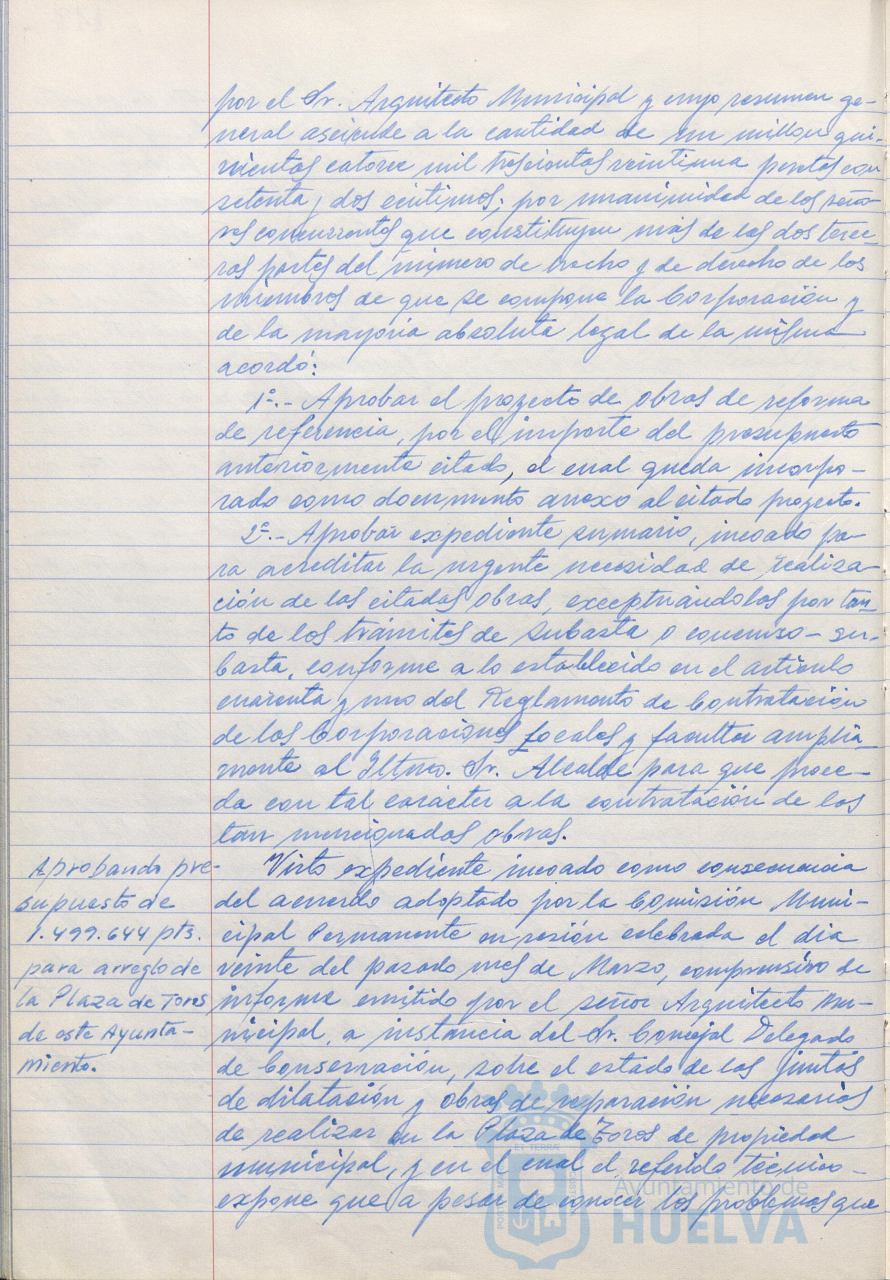 por el Sr. Arquitecto Municipal y cuyo resumen ge-
neral asciende a la cantidad de un millon qui-
nientas catorce mil trescientas veintiuna pesetas con
setenta y dos centimos; por unanimidad de los seño-
res concurrentes que constituyen más de las dos terce-
ras partes del número de hecho y de derecho de los
miembros de que se compone la Corporación y
de la mayoria absoluta legal de la misma
acordó:
1º.- Aprobar el proyecto de obras de reforma
de referencia, por el importe del presupuesto
anteriormente citado, el cual queda incorpo-
rado como documento anexo al citado proyecto.
2º.- Aprobar expediente sumario, incoado pa-
ra acreditar la urgente necesidad de realiza-
ción de las citadas obras, exceptuándolas por tan-
to de los trámites de subasta o concurso-su-
basta, conforme a lo establecido en el articulo
cuarenta y uno del Reglamento de Contratación
de las Corporaciones Locales y facultar amplia-
mente al Iltmo. Sr. Alcalde para que proce-
da con tal carácter a la contratación de las
tan mencionadas obras.
Aprobando pre-
supuesto de
1.499.644 pts.
para arreglo de
la Plaza de Toros
de este Ayunta-
miento.
Visto expediente incoado como consecuencia
del acuerdo adoptado por la Comisión Muni-
cipal Permanente en sesión celebrada el dia
veinte del pasado mes de Marzo, comprensivo de
informe emitido por el señor Arquitecto Mu-
nicipal, a instancia del Sr. Concejal Delegado
de Conservación, sobre el estado de las juntas
de dilatación y obras de reparación necesarias
de realizar en la Plaza de Toros de propiedad
municipal, y en el cual el referido técnico
expone que a pesar de conocer los problemas que
Ayuntamiento de
HUELVA